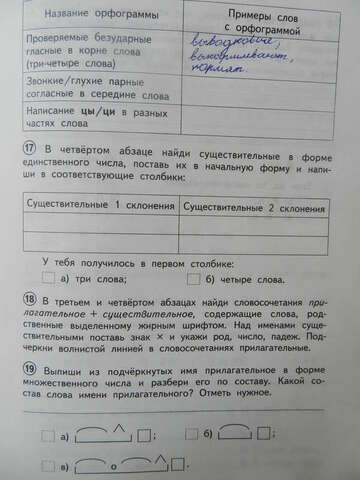 Название орфограммы
Примеры слов
с орфограммой
Проверяемые безударные
гласные в корне слова
(три-четыре слова)
выводковые,
выкармливают,
кормят.
Звонкие/глухие парные
согласные в середине слова
Написание цы/ци в разных
частях слова
17 В четвёртом абзаце найди существительные в форме
единственного числа, поставь их в начальную форму и напи-
ши в соответствующие столбики:
Существительные 1 склонения
Существительные 2 склонения
У тебя получилось в первом столбике:
а) три слова;
б) четыре слова.
18 В третьем и четвёртом абзацах найди словосочетания при-
лагательное + существительное, содержащие слова, род-
ственные выделенному жирным шрифтом. Над именами суще-
ствительными поставь знак × и укажи род, число, падеж. Под-
черкни волнистой линией в словосочетаниях прилагательные.
19 Выпиши из подчёркнутых имя прилагательное в форме
множественного числа и разбери его по составу. Какой со-
став слова имени прилагательного? Отметь нужное.
а) ;
б) ;
в) о .